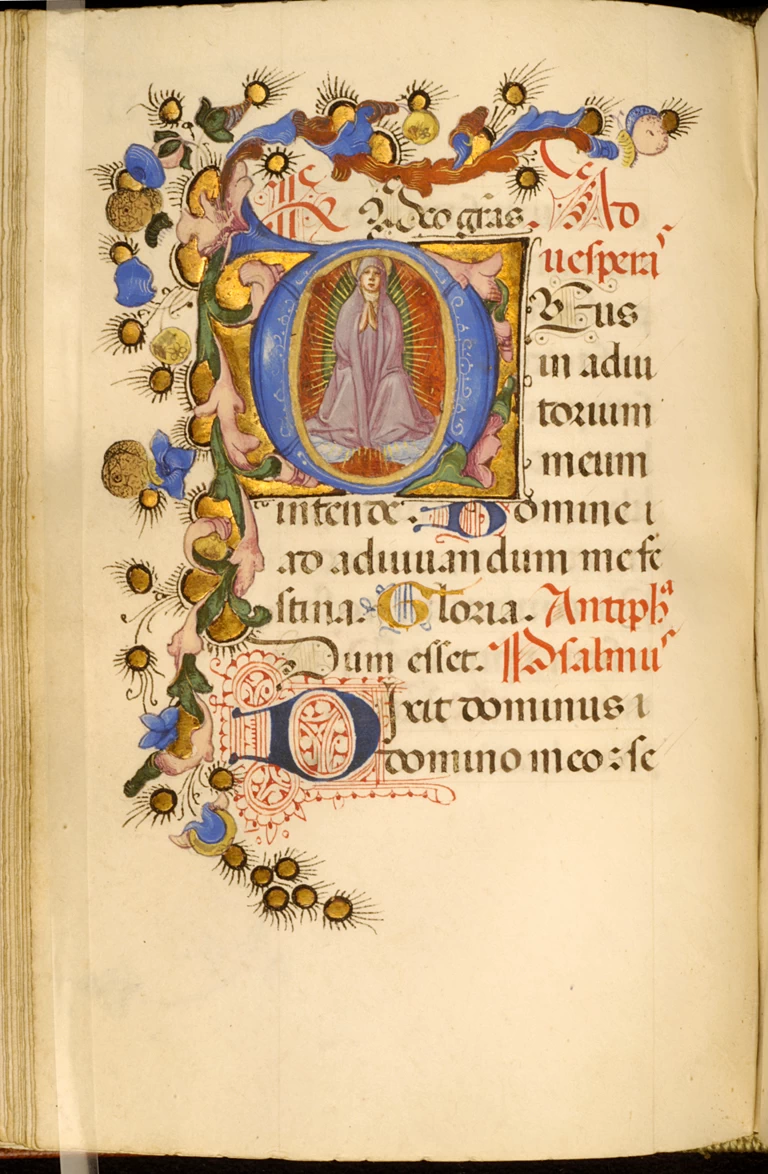 R Deo grās. Ad
uespera᷒
Eus
in adiu
torium
meum
intende. Domine i
ad adiuuandum me fe
stina. Gloria. Antiphᵃ
Dum esset. Psalmu᷒
Dixit dominus i
domino meo: se